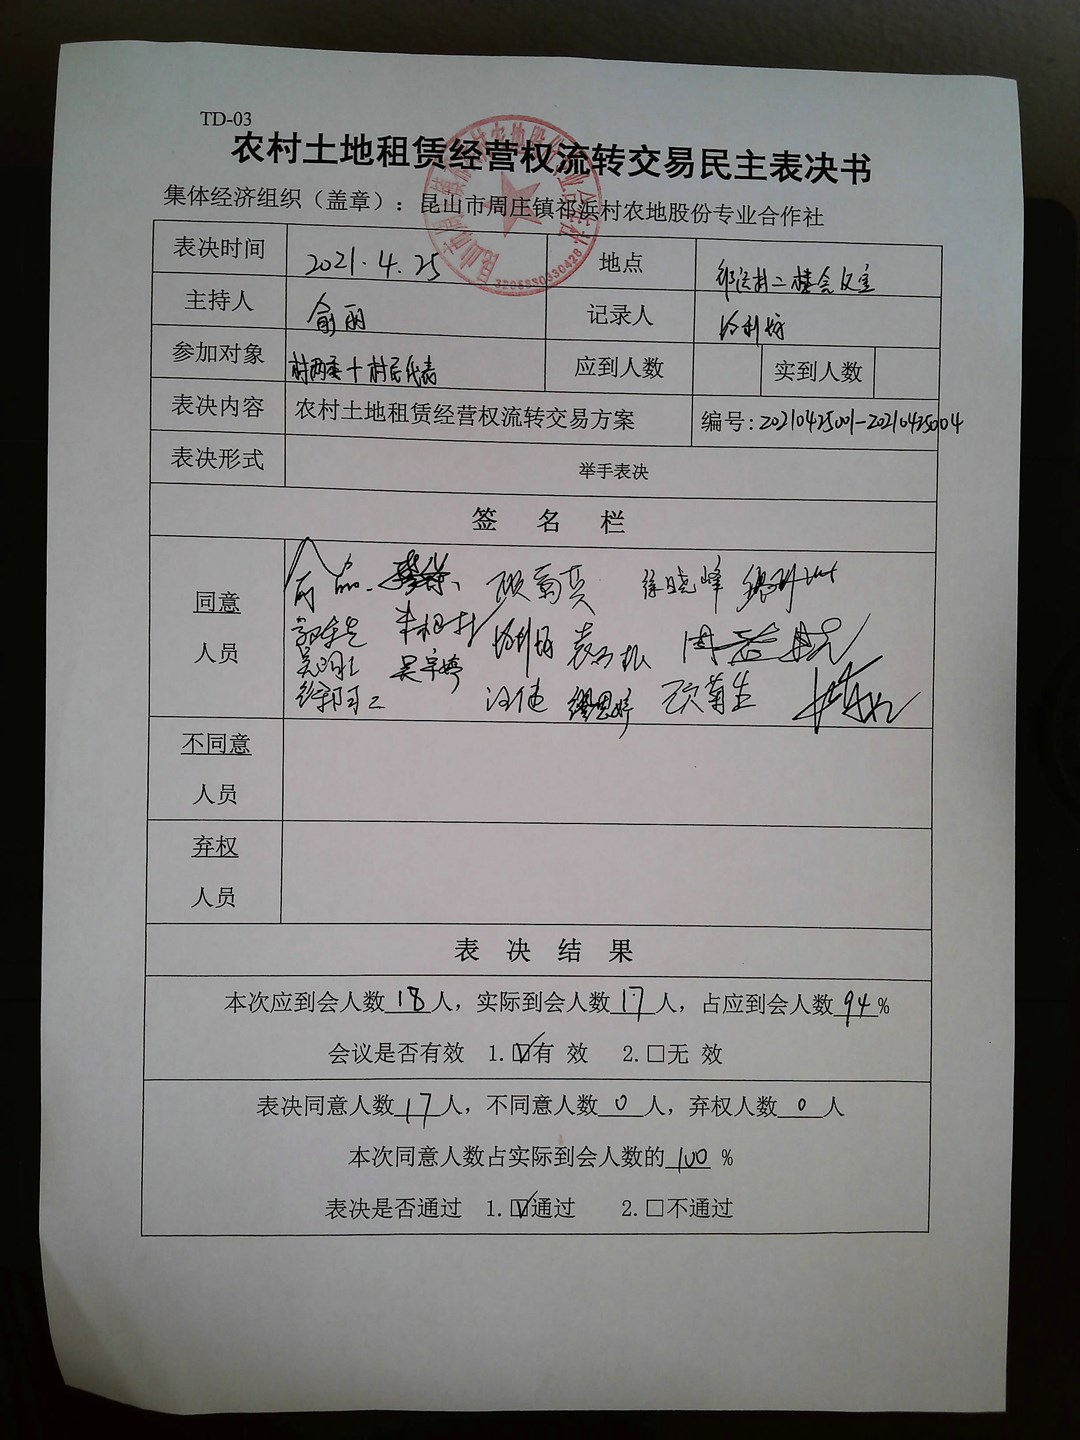 TD-03
农村土地租赁经营权流转交易民主表决书
集体经济组织（盖章）：昆山市周庄镇祁浜村农地股份专业合作社
表决时间 2021.4.25 地点 祁浜村二楼会议室
主持人 俞丽 记录人
参加对象 村两委+村民代表 应到人数 实到人数
表决内容 农村土地租赁经营权流转交易方案 编号:20210425001-20210425004
表决形式 举手表决
签 名 栏
同意
人员
顾菊英 徐晓峰
朱根
吴宇婷
徐阿二 汪健 缪思婷 顾菊生
不同意
人员
弃权
人员
表 决 结 果
本次应到会人数18人，实际到会人数17人，占应到会人数94%
会议是否有效 1.☑有 效 2.□无 效
表决同意人数17人，不同意人数0人，弃权人数0人
本次同意人数占实际到会人数的100 %
表决是否通过 1.☑通过 2.□不通过
3205830330428